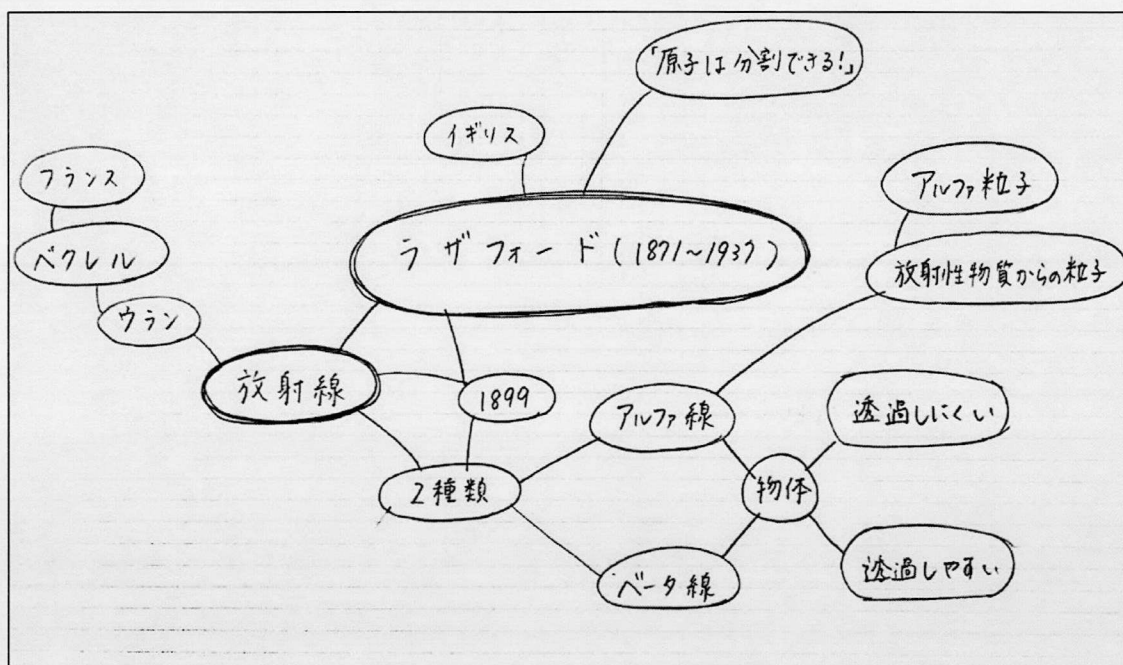 「原子は分割できる!」
イギリス
フランス
アルファ粒子
ラザフォード(1871~1937)
ベクレル
放射性物質からの粒子
ウラン
放射線
1899
アルファ線
透過しにくい
2種類
物体
ベータ線
透過しやすい